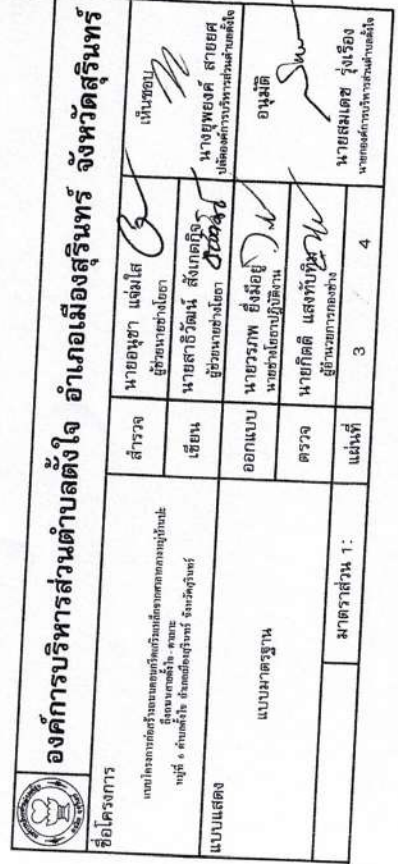 องค์การบริหารส่วนตำบลตั้งใจ อำเภอเมืองสุรินทร์ จังหวัดสุรินทร์
ชื่อโครงการ
แบบโครงการก่อสร้างถนนคอนกรีตเสริมเหล็กจากศาลากลางหมู่บ้านปะ
ถึงถนนสายตั้งใจ - ตาเบาะ
หมู่ที่ 6 ตำบลตั้งใจ อำเภอเมืองสุรินทร์ จังหวัดสุรินทร์
แบบแสดง
แบบมาตรฐาน
มาตราส่วน 1:
สำรวจ
นายอนุชา แจ่มใส
ผู้ช่วยนายช่างโยธา
เขียน
นายสาธิวัฒน์ สังเกตกิจ
ผู้ช่วยนายช่างโยธา
ออกแบบ
นายวรภพ ยิ่งมีอยู่
นายช่างโยธาปฏิบัติงาน
ตรวจ
นายกิตติ แสงทับทิม
ผู้อำนวยการกองช่าง
แผ่นที่
3
4
เห็นชอบ
นางยุพยงค์ สายยศ
ปลัดองค์การบริหารส่วนตำบลตั้งใจ
อนุมัติ
นายสมเดช รุ่งเรือง
นายกองค์การบริหารส่วนตำบลตั้งใจ